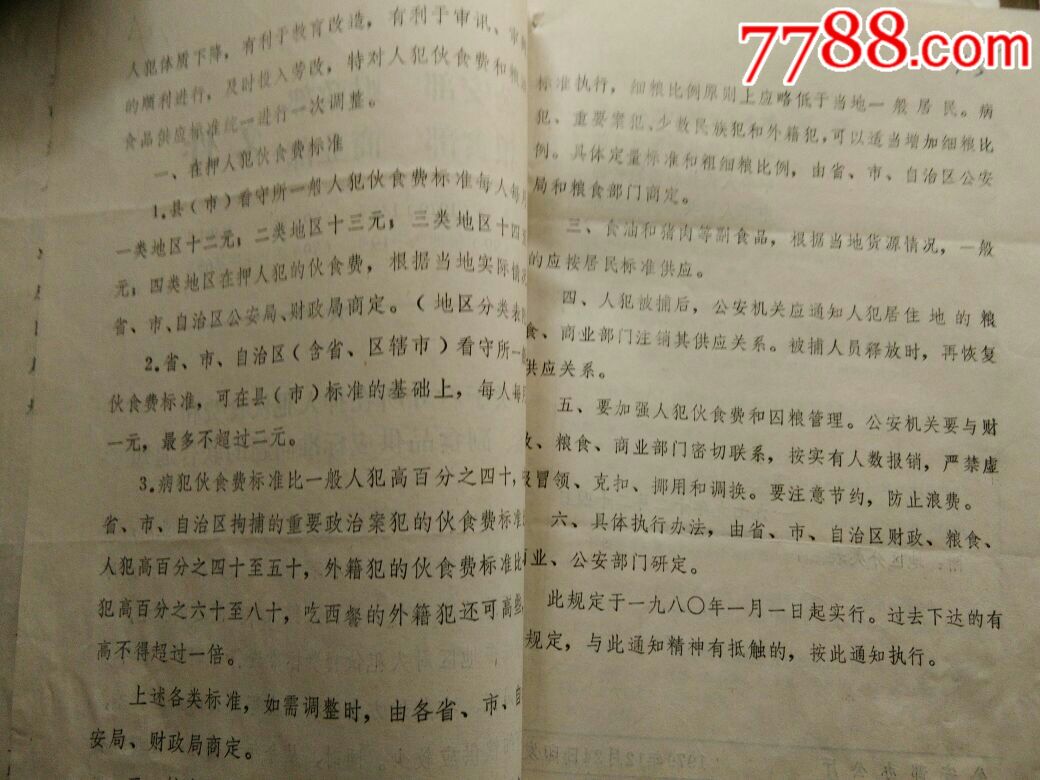 7788.com
人犯体质下降，有利于教育改造，有利于审讯、审
的顺利进行，及时投入劳改，特对人犯伙食费和粮
食品供应标准统一进行一次调整。
一、在押人犯伙食费标准
1.县（市）看守所一般人犯伙食费标准每人每月
一类地区十二元；二类地区十三元；三类地区十四
元；四类地区在押人犯的伙食费，根据当地实际情况
省、市、自治区公安局、财政局商定。（地区分类表
2.省、市、自治区（含省、区辖市）看守所一
伙食费标准，可在县（市）标准的基础上，每人每月
一元，最多不超过二元。
3.病犯伙食费标准比一般人犯高百分之四十，
省、市、自治区拘捕的重要政治案犯的伙食费标准
人犯高百分之四十至五十，外籍犯的伙食费标准比
犯高百分之六十至八十，吃西餐的外籍犯还可高些
高不得超过一倍。
上述各类标准，如需调整时，由各省、市、自
安局、财政局商定。
标准执行，细粮比例原则上应略低于当地一般居民。病
犯、重要案犯、少数民族犯和外籍犯，可以适当增加细粮比
例。具体定量标准和粗细粮比例，由省、市、自治区公安
局和粮食部门商定。
三、食油和猪肉等副食品，根据当地货源情况，一般
的应按居民标准供应。
四、人犯被捕后，公安机关应通知人犯居住地的粮
食、商业部门注销其供应关系。被捕人员释放时，再恢复
供应关系。
五、要加强人犯伙食费和囚粮管理。公安机关要与财
政、粮食、商业部门密切联系，按实有人数报销，严禁虚
报冒领、克扣、挪用和调换。要注意节约，防止浪费。
六、具体执行办法，由省、市、自治区财政、粮食、
商业、公安部门研定。
此规定于一九八〇年一月一日起实行。过去下达的有
规定，与此通知精神有抵触的，按此通知执行。